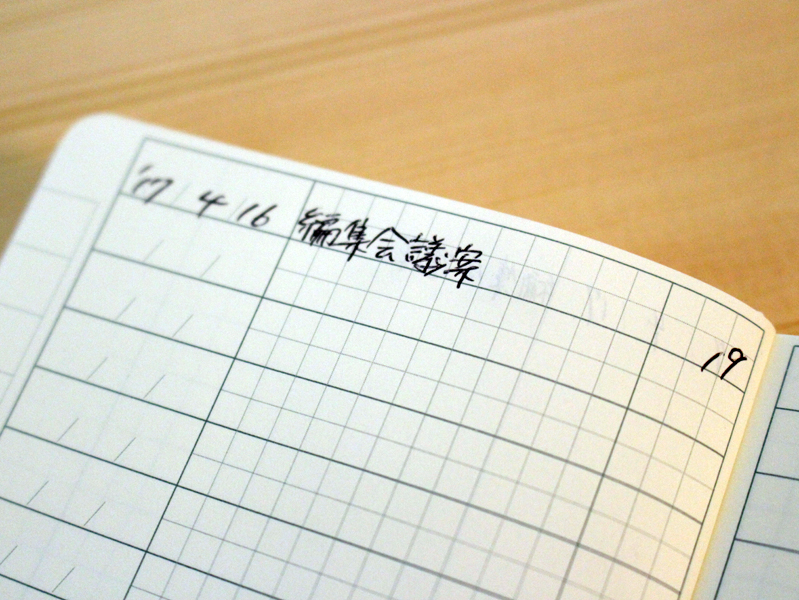 '17 4 16 編集会議案 19